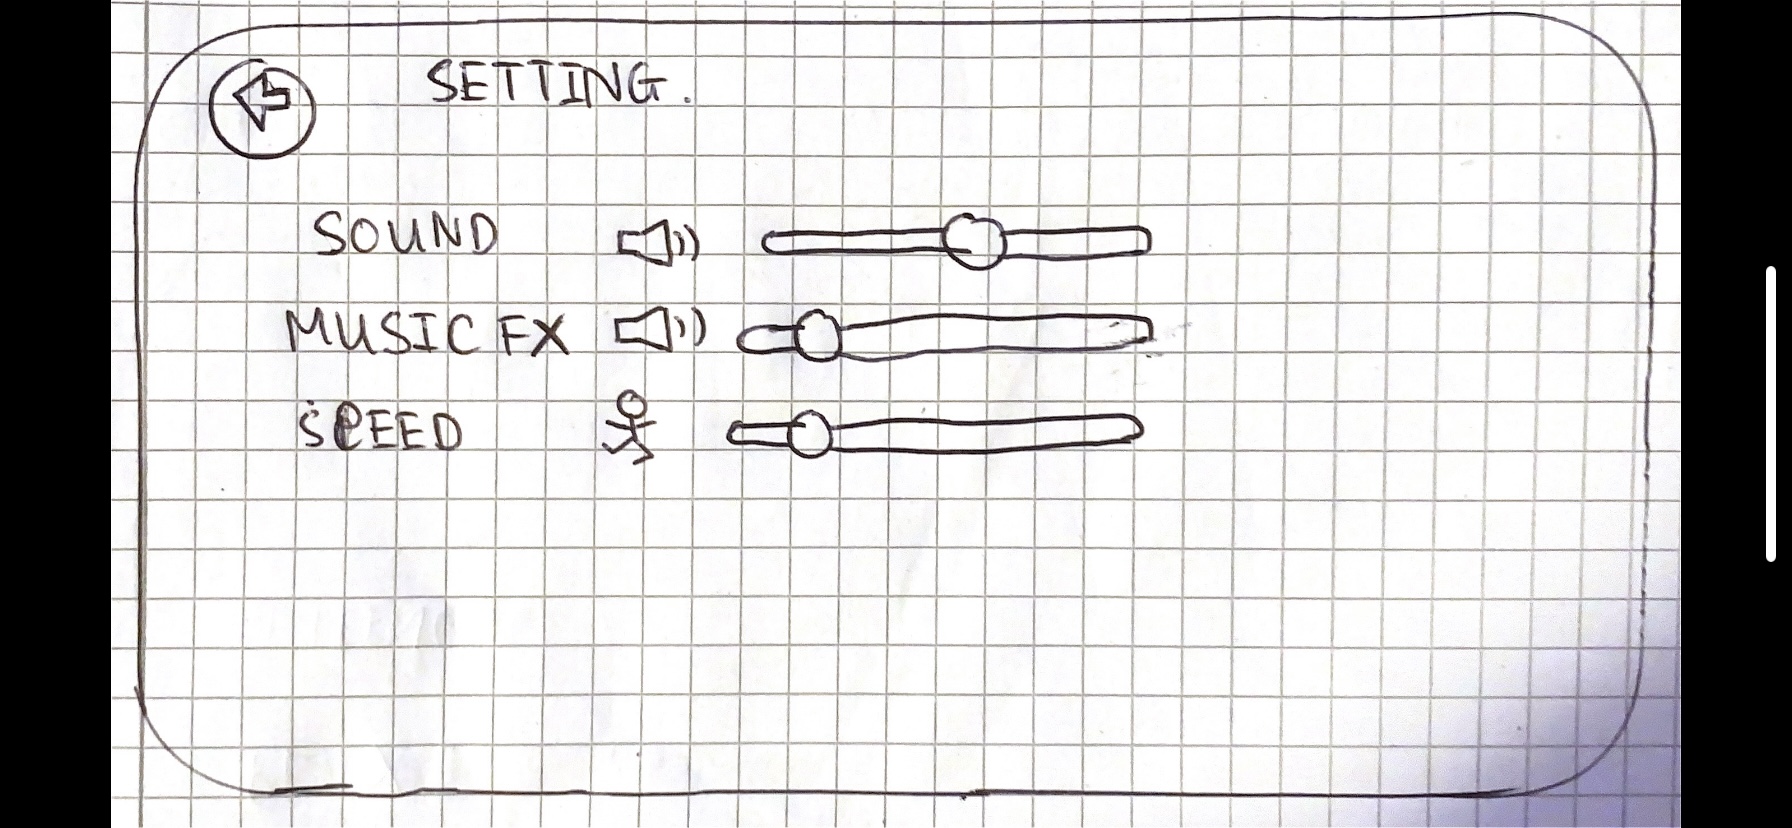 SETTING.
SOUND
MUSIC FX
SPEED